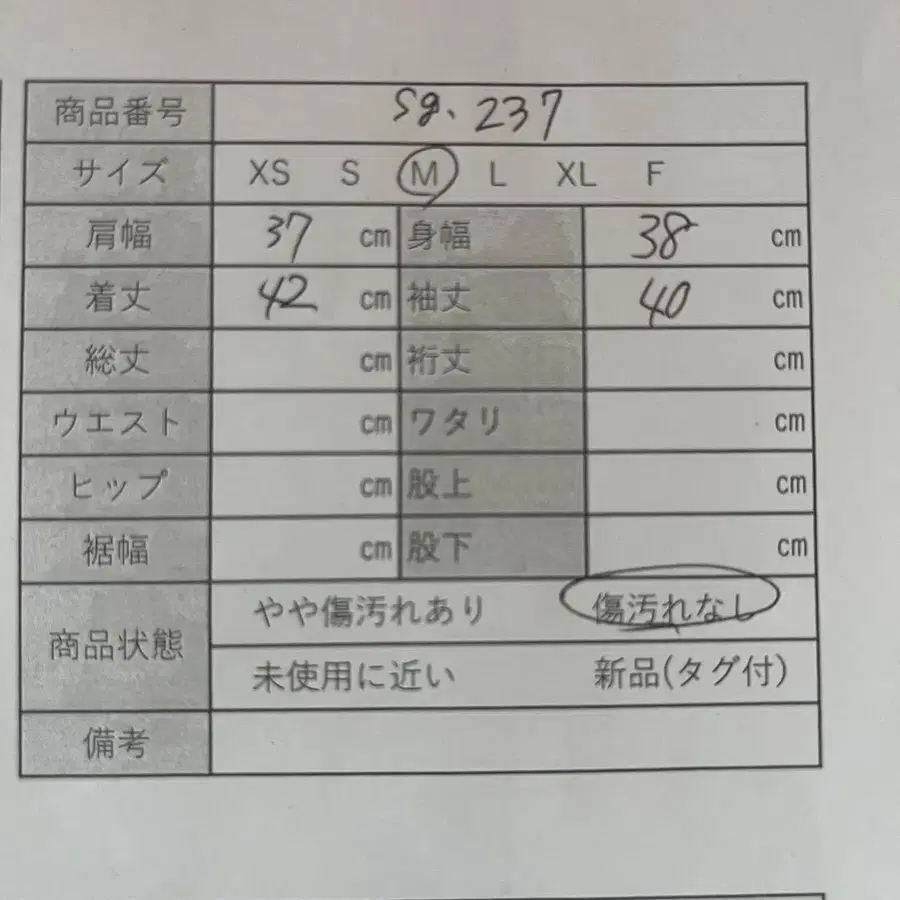 商品番号 sg. 237
サイズ XS S M L XL F
肩幅 37 cm 身幅 38 cm
着丈 42 cm 袖丈 40 cm
総丈 cm 裄丈 cm
ウエスト cm ワタリ cm
ヒップ cm 股上 cm
裾幅 cm 股下 cm
商品状態 やや傷汚れあり 傷汚れなし
未使用に近い 新品(タグ付)
備考